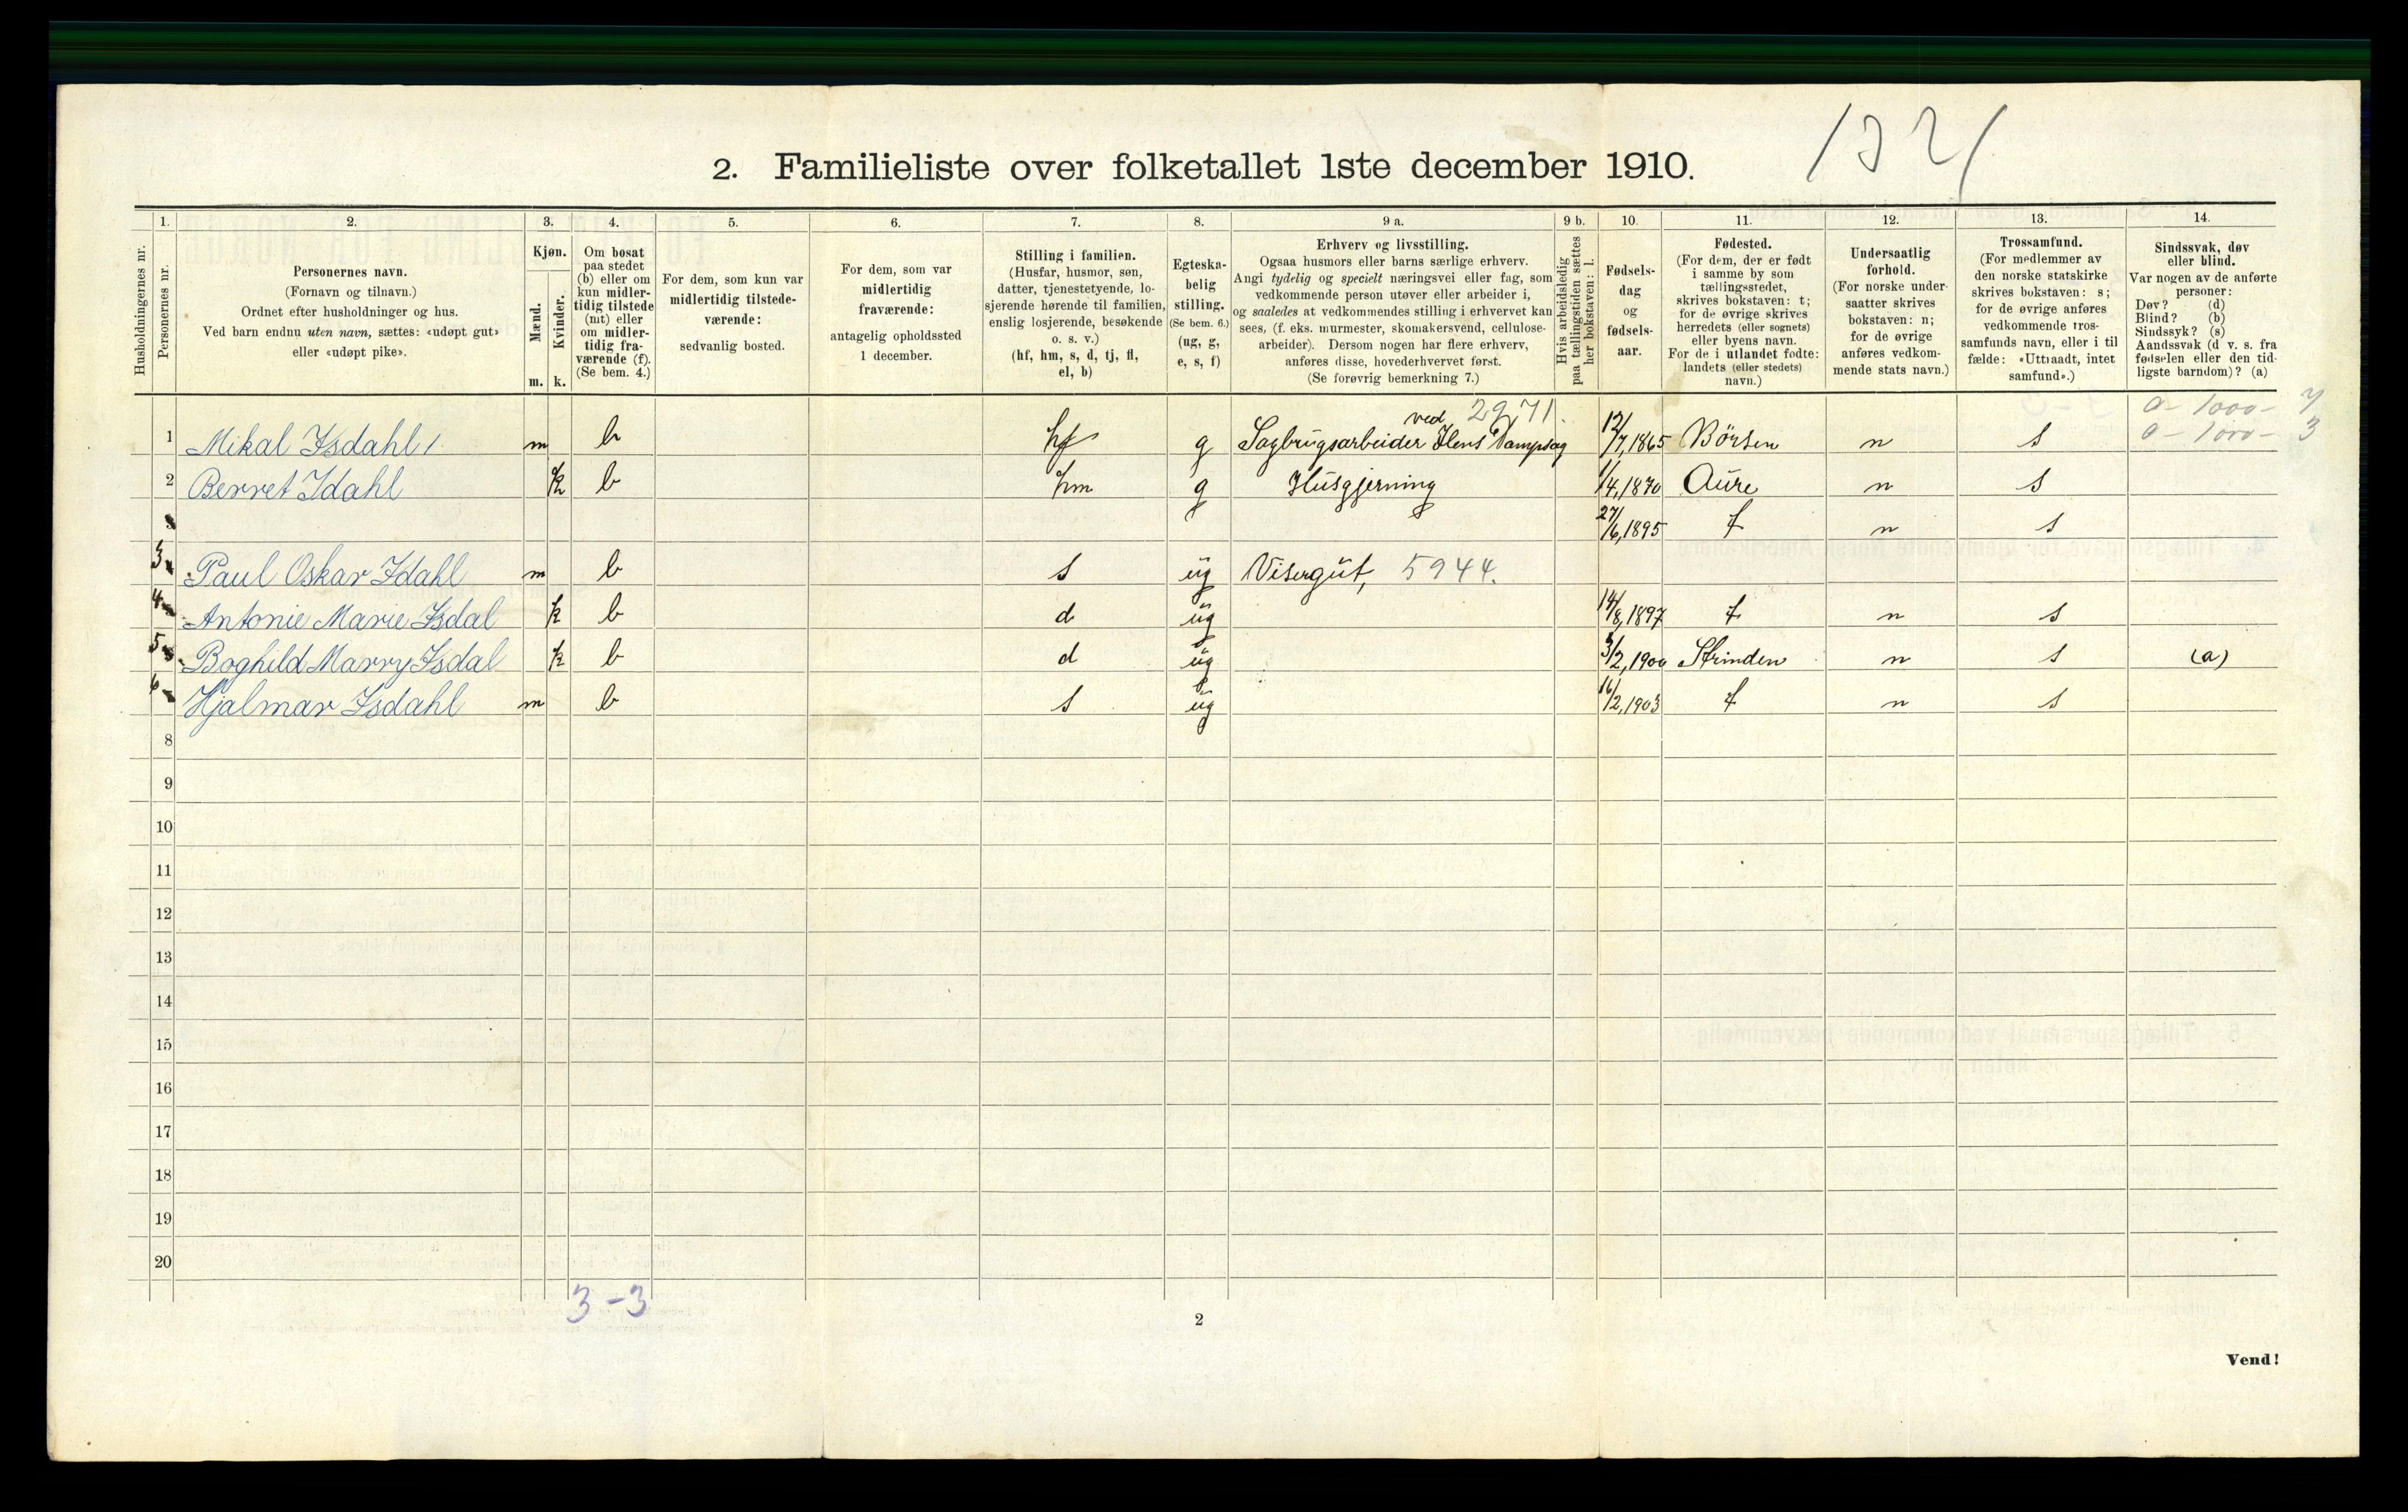 1321
2. Familieliste over folketallet 1ste december 1910.
1. 2. 3. 4. 5. 6. 7. 8. 9 a. 9 b. 10. 11. 12. 13. 14.
Husholdningernes nr.
Personernes nr.
Personernes navn.
(Fornavn og tilnavn.)
Ordnet efter husholdninger og hus.
Ved barn endnu uten navn, sættes: «udøpt gut»
eller «udøpt pike».
Kjøn.
Mænd.
Kvinder.
m. k.
Om bosat
paa stedet
(b) eller om
kun midler-
tidig tilstede
(mt) eller
om midler-
tidig fra-
værende (f).
(Se bem. 4.)
For dem, som kun var
midlertidig tilstede-
værende:
sedvanlig bosted.
For dem, som var
midlertidig
fraværende:
antagelig opholdssted
1 december.
Stilling i familien.
(Husfar, husmor, søn,
datter, tjenestetyende, lo-
sjerende hørende til familien,
enslig losjerende, besøkende
o. s. v.)
(hf, hm, s, d, tj, fl,
el, b)
Egteska-
belig
stilling.
(Se bem. 6.)
(ug, g,
e, s, f)
Erhverv og livsstilling.
Ogsaa husmors eller barns særlige erhverv.
Angi tydelig og specielt næringsvei eller fag, som
vedkommende person utøver eller arbeider i,
og saaledes at vedkommendes stilling i erhvervet kan
sees, (f. eks. murmester, skomakersvend, cellulose-
arbeider). Dersom nogen har flere erhverv,
anføres disse, hovederhvervet først.
(Se forøvrig bemerkning 7.)
Hvis arbeidsledig
paa tællingstiden sættes
her bokstaven: l.
Fødsels-
dag
og
fødsels-
aar.
Fødested.
(For dem, der er født
i samme by som
tællingsstedet,
skrives bokstaven: t;
for de øvrige skrives
herredets (eller sognets)
eller byens navn.
For de i utlandet fødte:
landets (eller stedets)
navn.)
Undersaatlig
forhold.
(For norske under-
saatter skrives
bokstaven: n;
for de øvrige
anføres vedkom-
mende stats navn.)
Trossamfund.
(For medlemmer av
den norske statskirke
skrives bokstaven: s;
for de øvrige anføres
vedkommende tros-
samfunds navn, eller i til
fælde: «Uttraadt, intet
samfund».)
Sindssvak, døv
eller blind.
Var nogen av de anførte
personer:
Døv? (d)
Blind? (b)
Sindssyk? (s)
Aandssvak (d v. s. fra
fødselen eller den tid-
ligste barndom)? (a)
ved 2971. 0 - 1000 - 7
0 - 1000 - 3
1 Mikal Isdahl 1. m b hf g Sagbrugsarbeider Ilens Dampsag 12/7, 1865 Börsen n s
2 Berret Idahl k b hm g Husgjerning 1/4, 1870 Aure n s
27/6, 1895 t n s
3 Paul Oskar Idahl m b s ug Visergut, 5944.
4 Antonie Marie Isdal k b d ug 14/8, 1897 t n s
5 Boghild Marry Isdal k b d ug 3/2, 1900 Strinden n s (a)
6 Hjalmar Isdahl m b s ug 16/2, 1903 t n s
8
9
10
11
12
13
14
15
16
17
18
19
20
3 - 3
2
Vend!